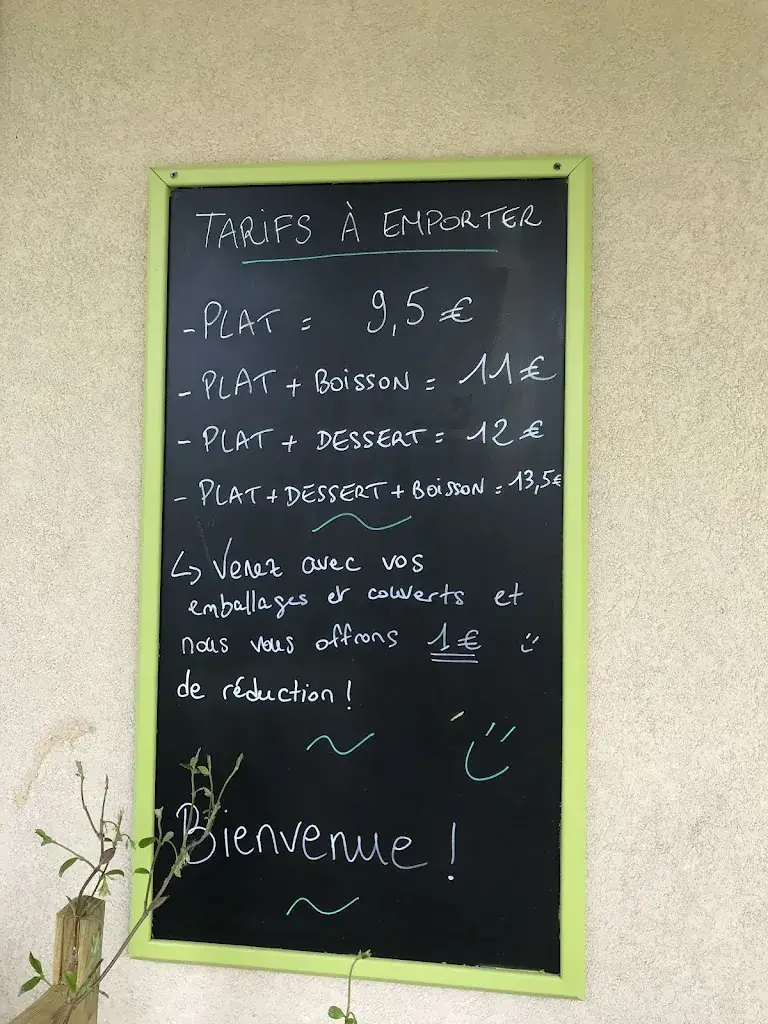 TARIFS À EMPORTER
- PLAT = 9,5 €
- PLAT + BOISSON = 11 €
- PLAT + DESSERT = 12 €
- PLAT + DESSERT + BOISSON = 13,5 €
↳ Venez avec vos
emballages et couverts et
nous vous offrons 1 €
de réduction !
Bienvenue !